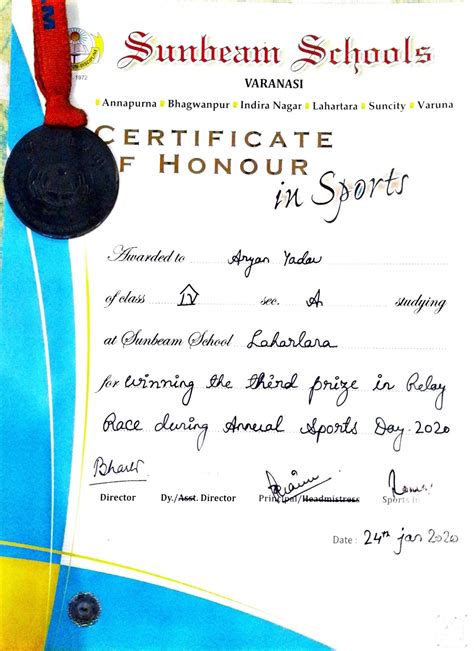 1972
Sunbeam Schools
VARANASI
Annapurna Bhagwanpur Indira Nagar Lahartara Suncity Varuna
CERTIFICATE
OF HONOUR
in Sports
Awarded to Aryan Yadav
of class IV sec. A studying
at Sunbeam School Lahartara
for winning the third prize in Relay
Race during Annual Sports Day 2020
Director Dy./Asst. Director Principal/Headmistress Sports
Date : 24th jan 2020